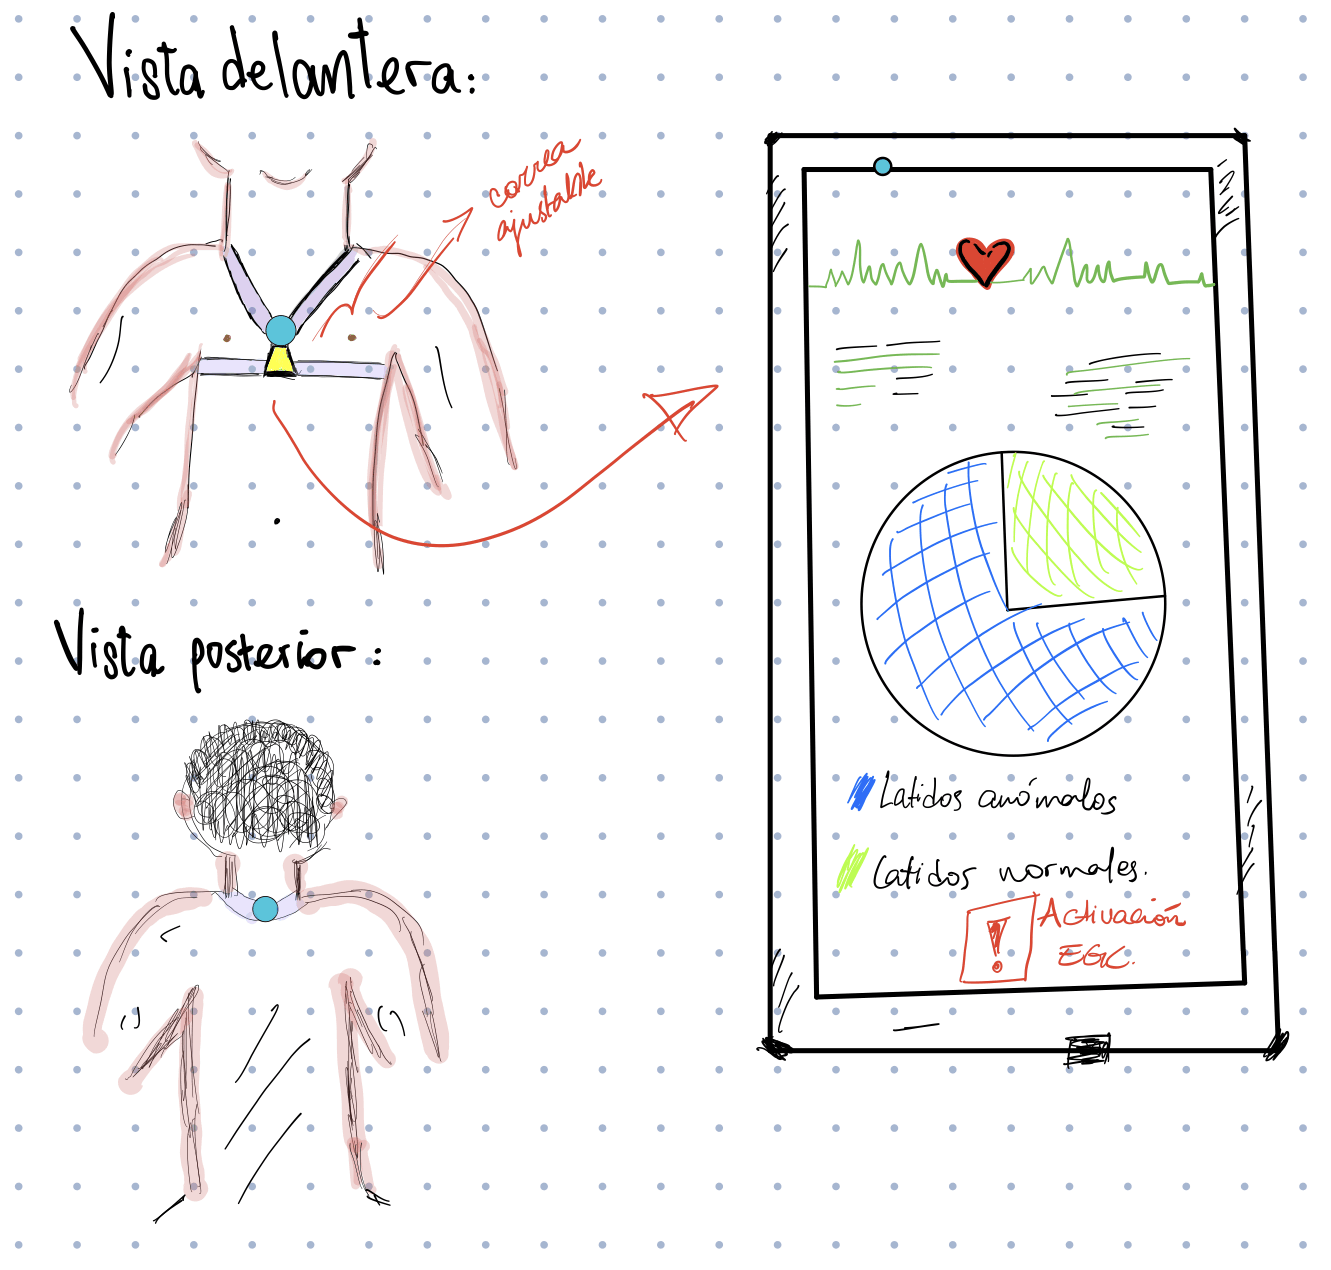 Vista delantera:
correa
ajustable
Vista posterior:
Latidos anómalos
Latidos normales.
! Activación
EGC.